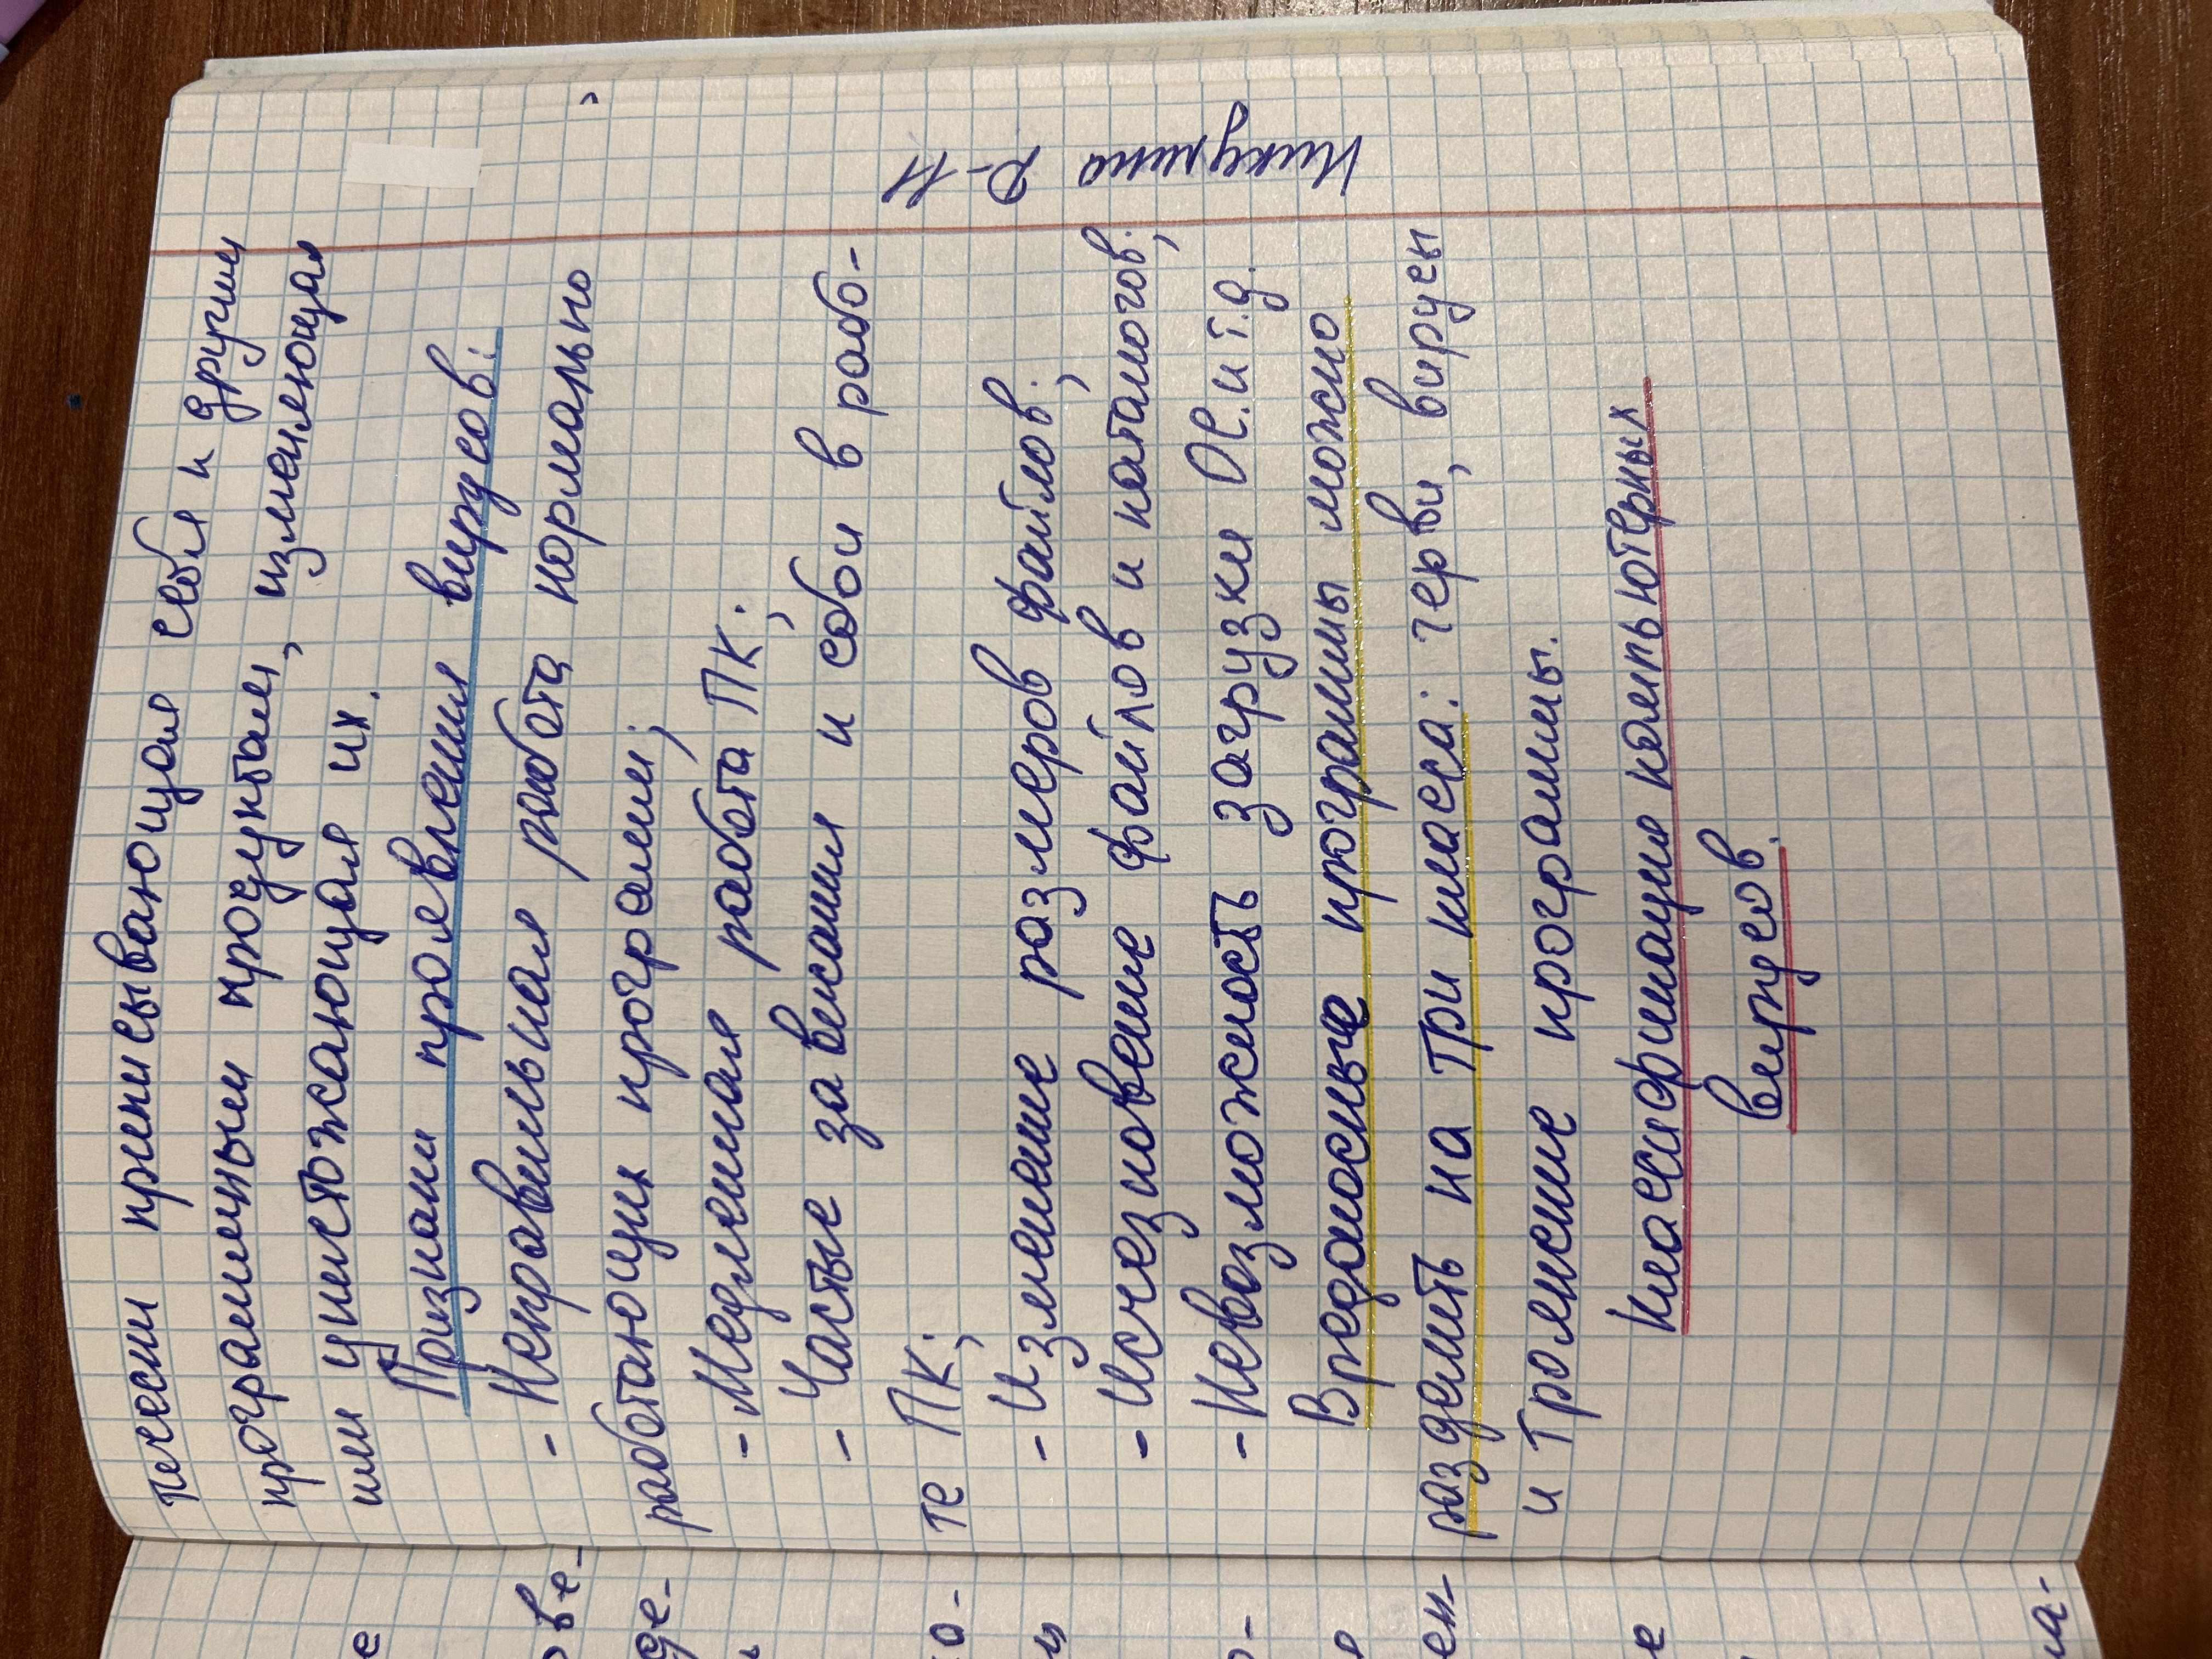 чески приписывающая себя к другим
программным продуктам, изменяющая
или уничтожающая их.
Признаки проявления вирусов:
- Неправильная работа нормально
работающих программ;
- Медленная работа ПК;
- Частые зависания и сбои в рабо-
те ПК;
- Изменение размеров файлов;
- Исчезновение файлов и каталогов;
- Невозможность загрузки ОС. и т.д.
Вредоносные программы можно
разделить на три класса: черви, вирусы
и Троянские программы.
Классификация компьютерных
вирусов.
Никулина Р-11
е
ове-
де-
о-
и
о-
ен-
е
ла-